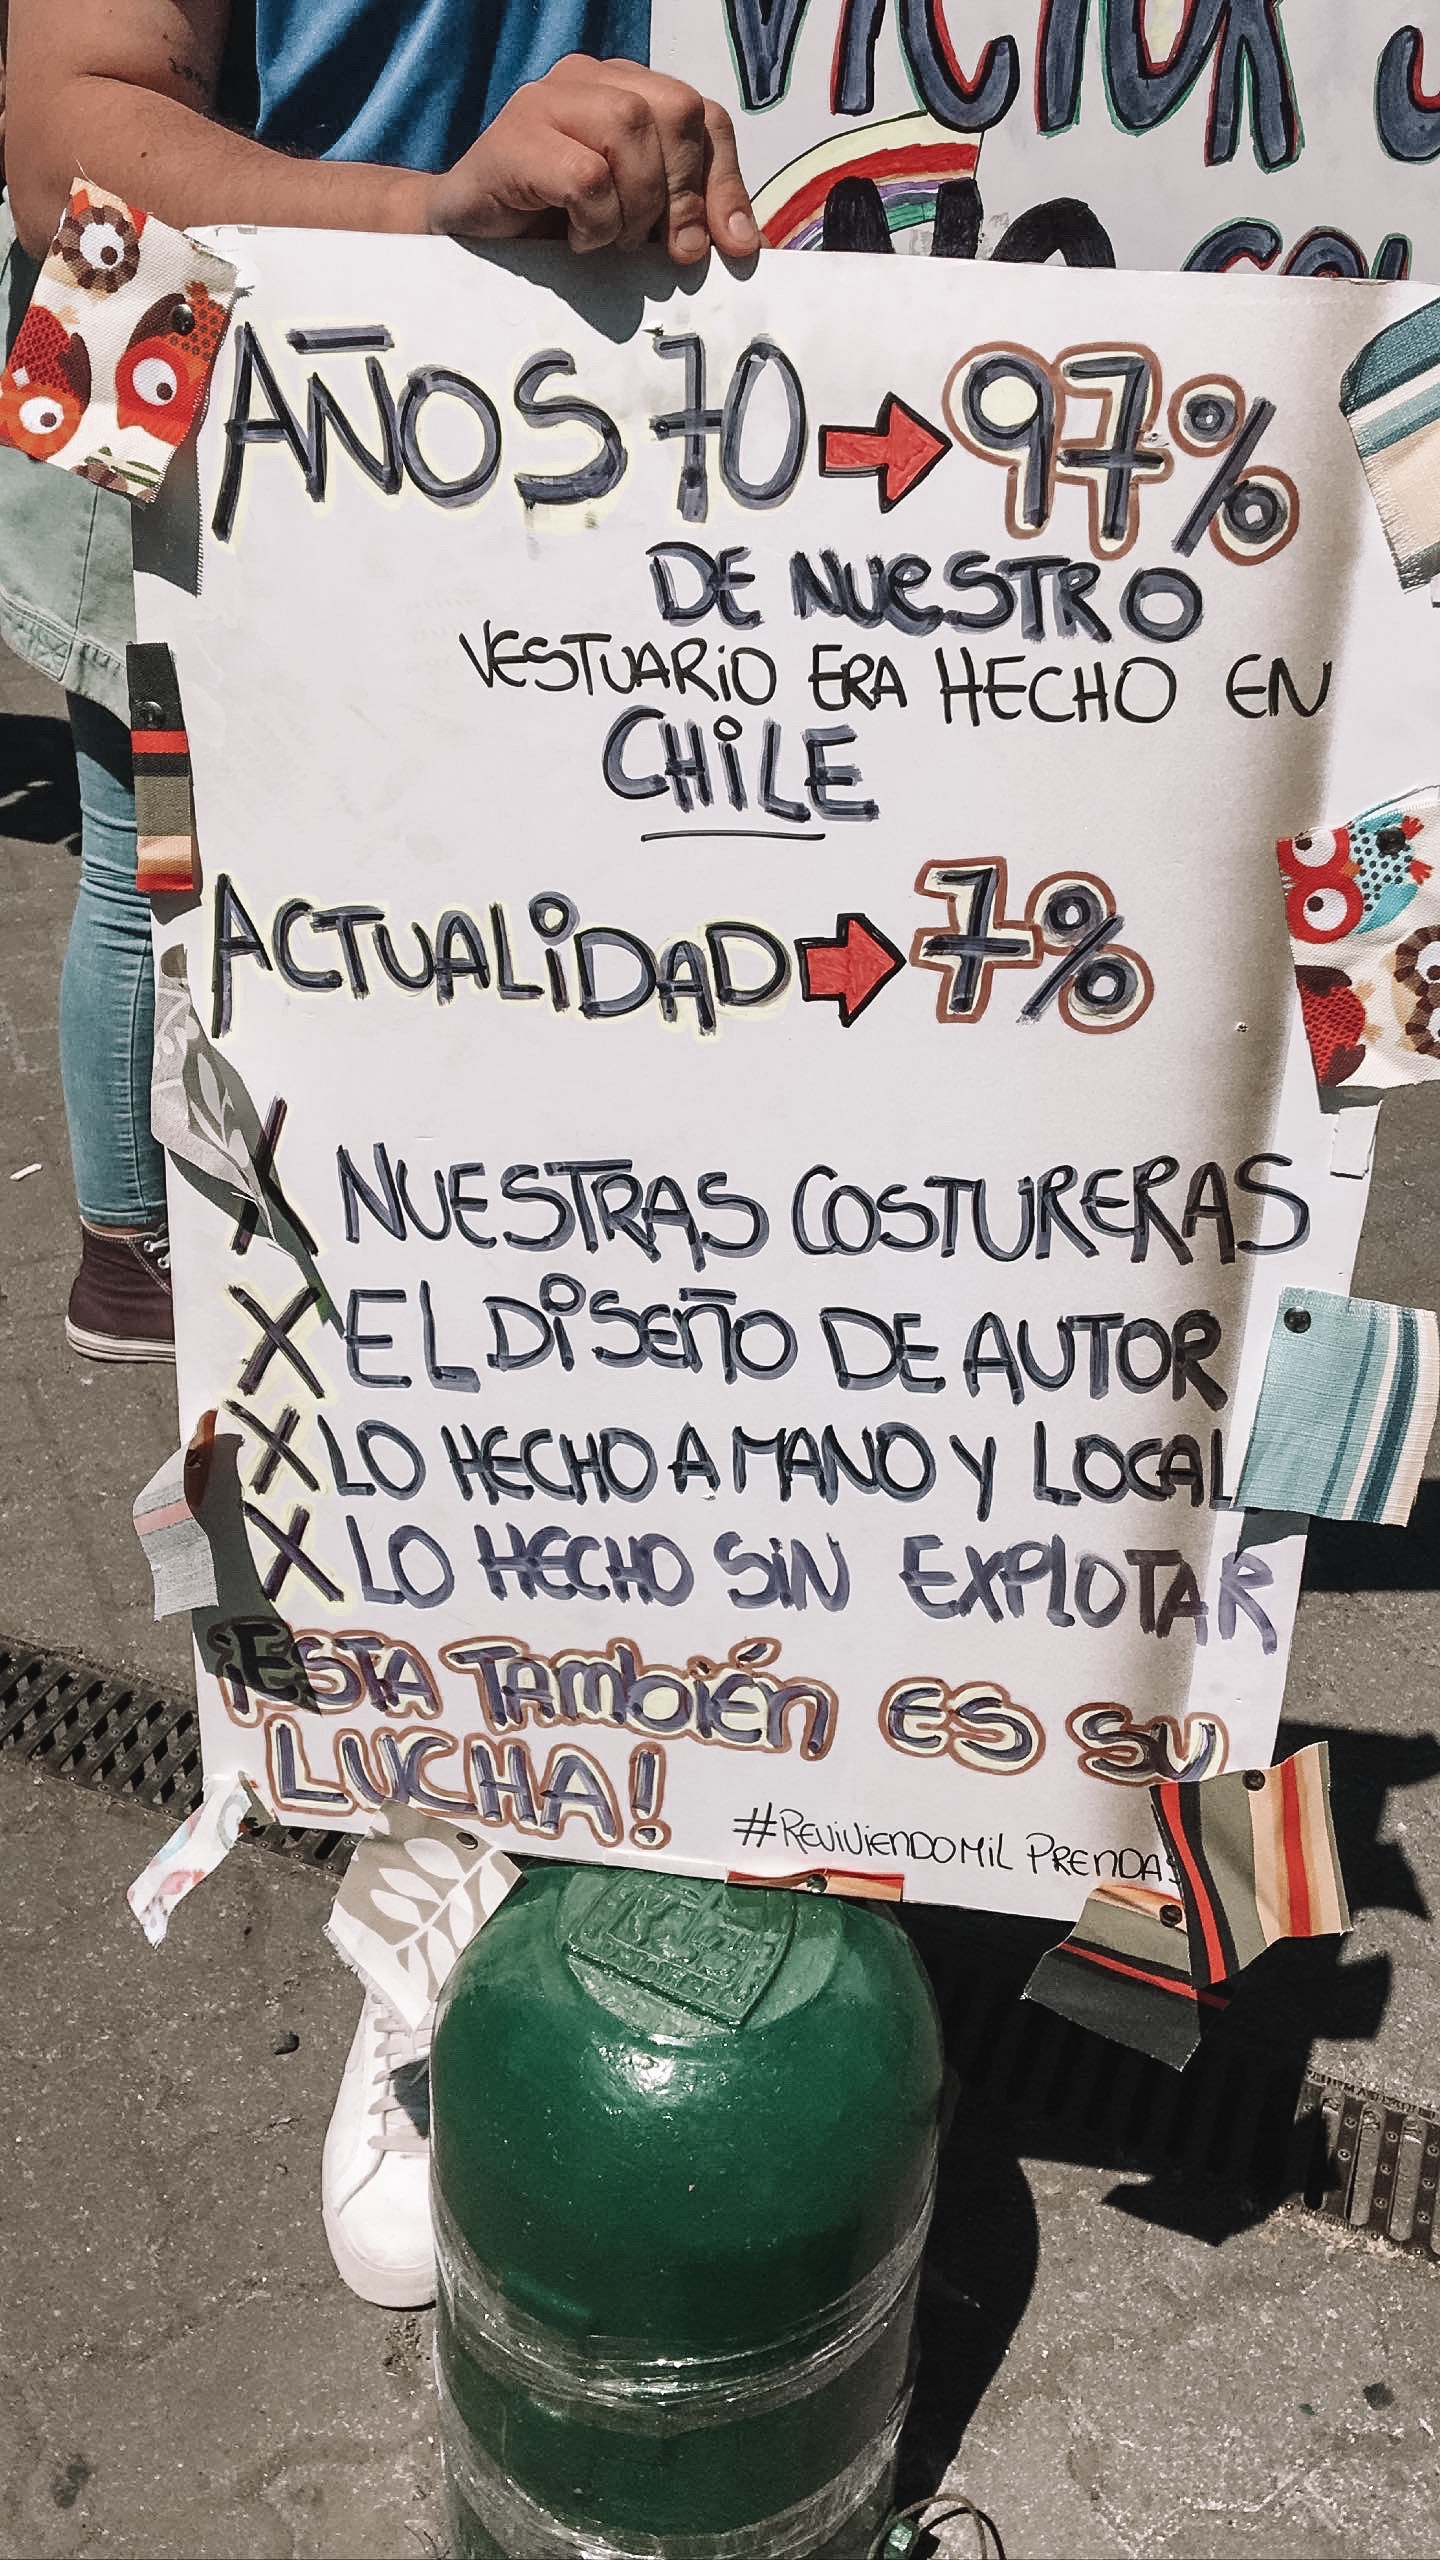 VICTOR
NO
AÑOS 70 → 97%
DE NUESTRO
VESTUARIO ERA HECHO EN
CHILE
ACTUALIDAD → 7%
X NUESTRAS COSTURERAS
X EL DISEÑO DE AUTOR
X LO HECHO A MANO Y LOCAL
X LO HECHO SIN EXPLOTAR
¡ESTA TAMBIÉN ES SU
LUCHA!
#REVIVIENDOMIL PRENDAS